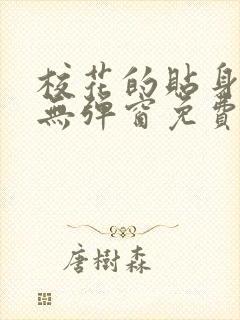 校花的貼身
無彈窗免費
唐樹森